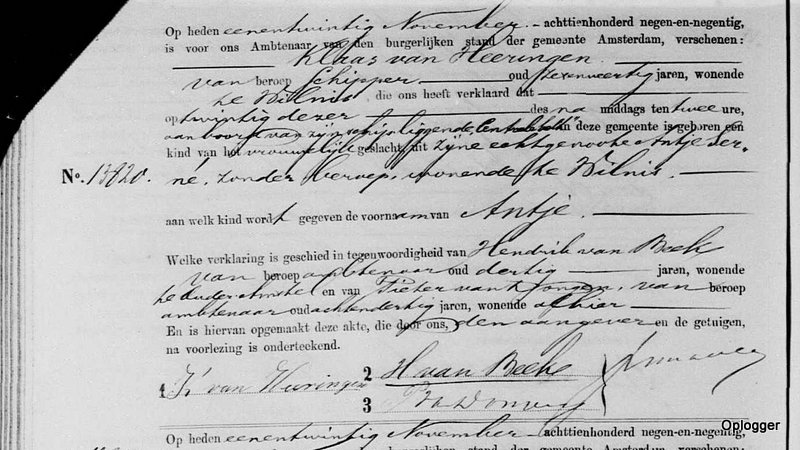 Op heden eenentwintig November - achttienhonderd negen-en-negentig,
is voor ons Ambtenaar van den burgerlijken stand der gemeente Amsterdam, verschenen:
Klaas van Heeringen
van beroep Schipper oud jaren, wonende
te Wilnis die ons heeft verklaard dat
op twintig dezer des na middags ten twee ure,
aan boord van zijn schip liggende in deze gemeente is geboren een
kind van het vrouwelijk geslacht, uit zijne echtgenoote Antje
No. 13820. zonder beroep, wonende te Wilnis.
aan welk kind wordt gegeven de voornaam van Antje.
Welke verklaring is geschied in tegenwoordigheid van Hendrik van Beek
van beroep oud dertig jaren, wonende
te en van Pieter van van beroep
ambtenaar oud achtendertig jaren, wonende alhier
En is hiervan opgemaakt deze akte, die door ons, den aangever en de getuigen,
na voorlezing is onderteekend.
1 K van Heeringen 2 H van Beek
3
Op heden eenentwintig November - achttienhonderd negen-en-negentig,
is voor ons Ambtenaar van den burgerlijken stand der gemeente Amsterdam, verschenen:
Oplogger